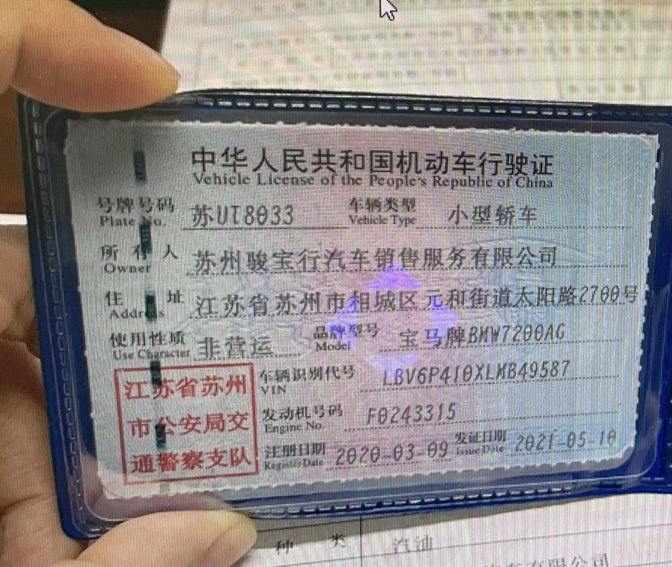 中华人民共和国机动车行驶证
Vehicle License of the People's Republic of China
号牌号码 苏UT8033 车辆类型 小型轿车
Plate No. Vehicle Type
所有人 苏州骏宝行汽车销售服务有限公司
Owner
住址 江苏省苏州市相城区元和街道太阳路2700号
Address
使用性质 非营运 品牌型号 宝马牌BMW7200AG
Use Character Model
江苏省苏州 车辆识别代号 LBV6P410XLMB49587
VIN
市公安局交 发动机号码 F0243315
Engine No.
通警察支队 注册日期 2020-03-09 发证日期 2021-05-10
Register Date Issue Date
种类 汽油
有限公司